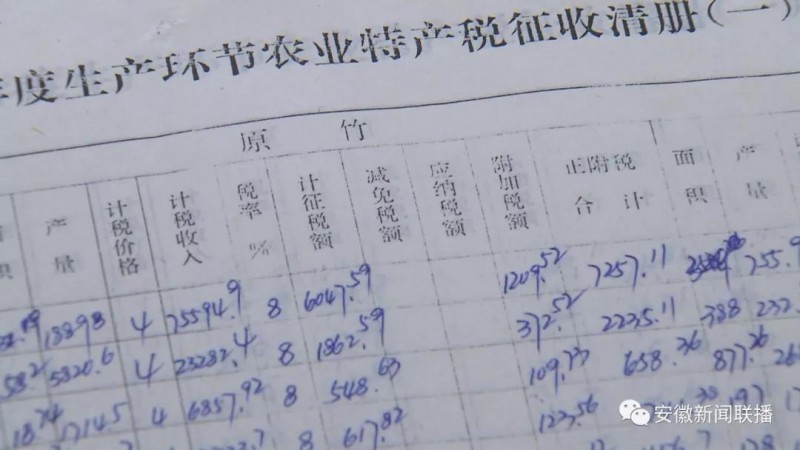 年度生产环节农业特产税征收清册(一)
原 竹
积 产量 计税价格 计税收入 税率% 计征税额 减免税额 应纳税额 附加税额 正附税合计 面积 产量
4 75594.9 8 6047.59 1209.52 7257.11 755.9
582 5820.6 4 23282.4 8 1862.59 372.52 2235.11 388 232.
4 6857.92 8 548.63 109.73 658.36 877.26
8 617.82 123.56
安徽新闻联播